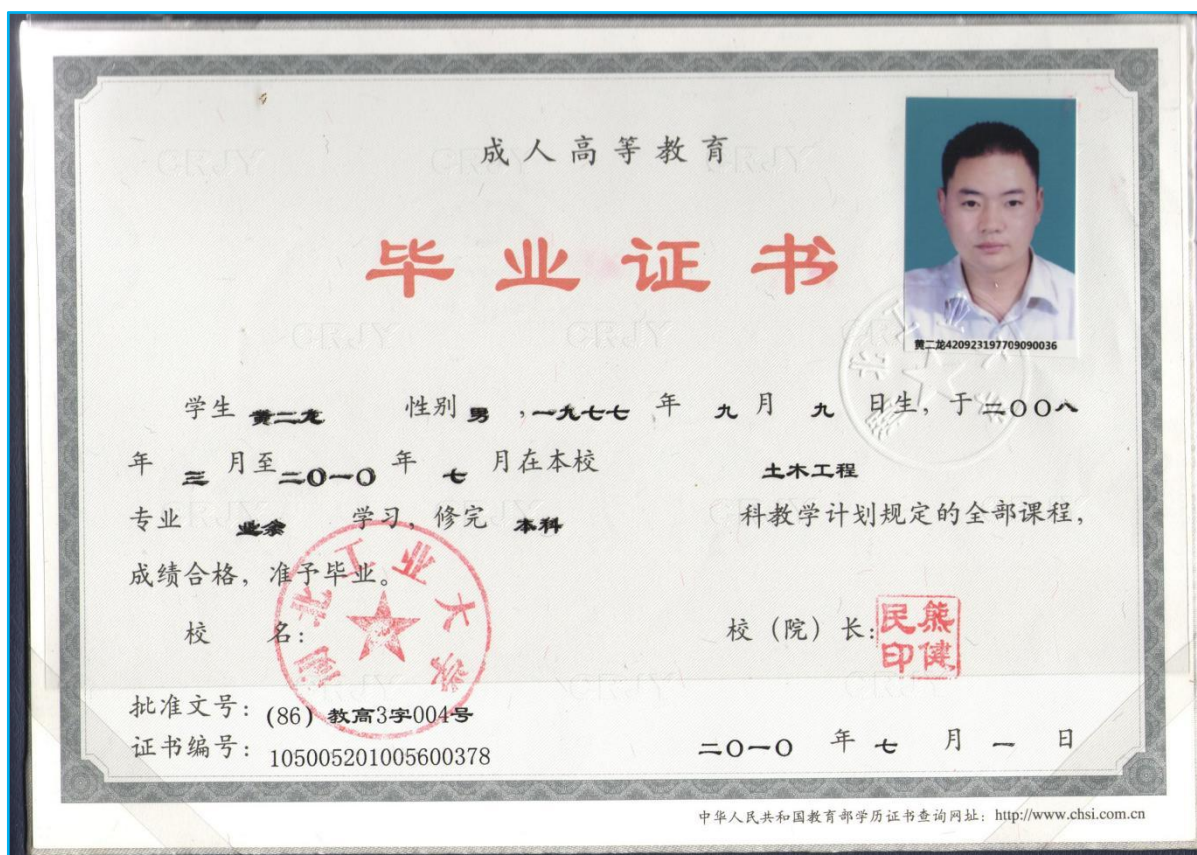 成人高等教育
毕业证书
黄二龙420923197709090036
学生 黄二龙 性别 男 ,一九七七 年 九 月 九 日生, 于 二〇〇八
年 三 月至 二〇一〇 年 七 月在本校 土木工程
专业 业余 学习, 修完 本科 科教学计划规定的全部课程,
成绩合格, 准予毕业。
校 名: 湖北工业大学 校 (院) 长: 熊健民印
批准文号: (86) 教高3字004号
证书编号: 105005201005600378
二〇一〇 年 七 月 一 日
中华人民共和国教育部学历证书查询网址: http://www.chsi.com.cn
CRJY